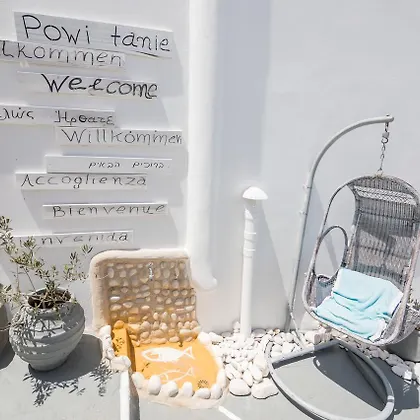 Powi tanie
lkommen
Welcome
λώς Ηρθατε
Willkommen
ברוכים הבאים
Accoglienza
Bienvenue
envenida